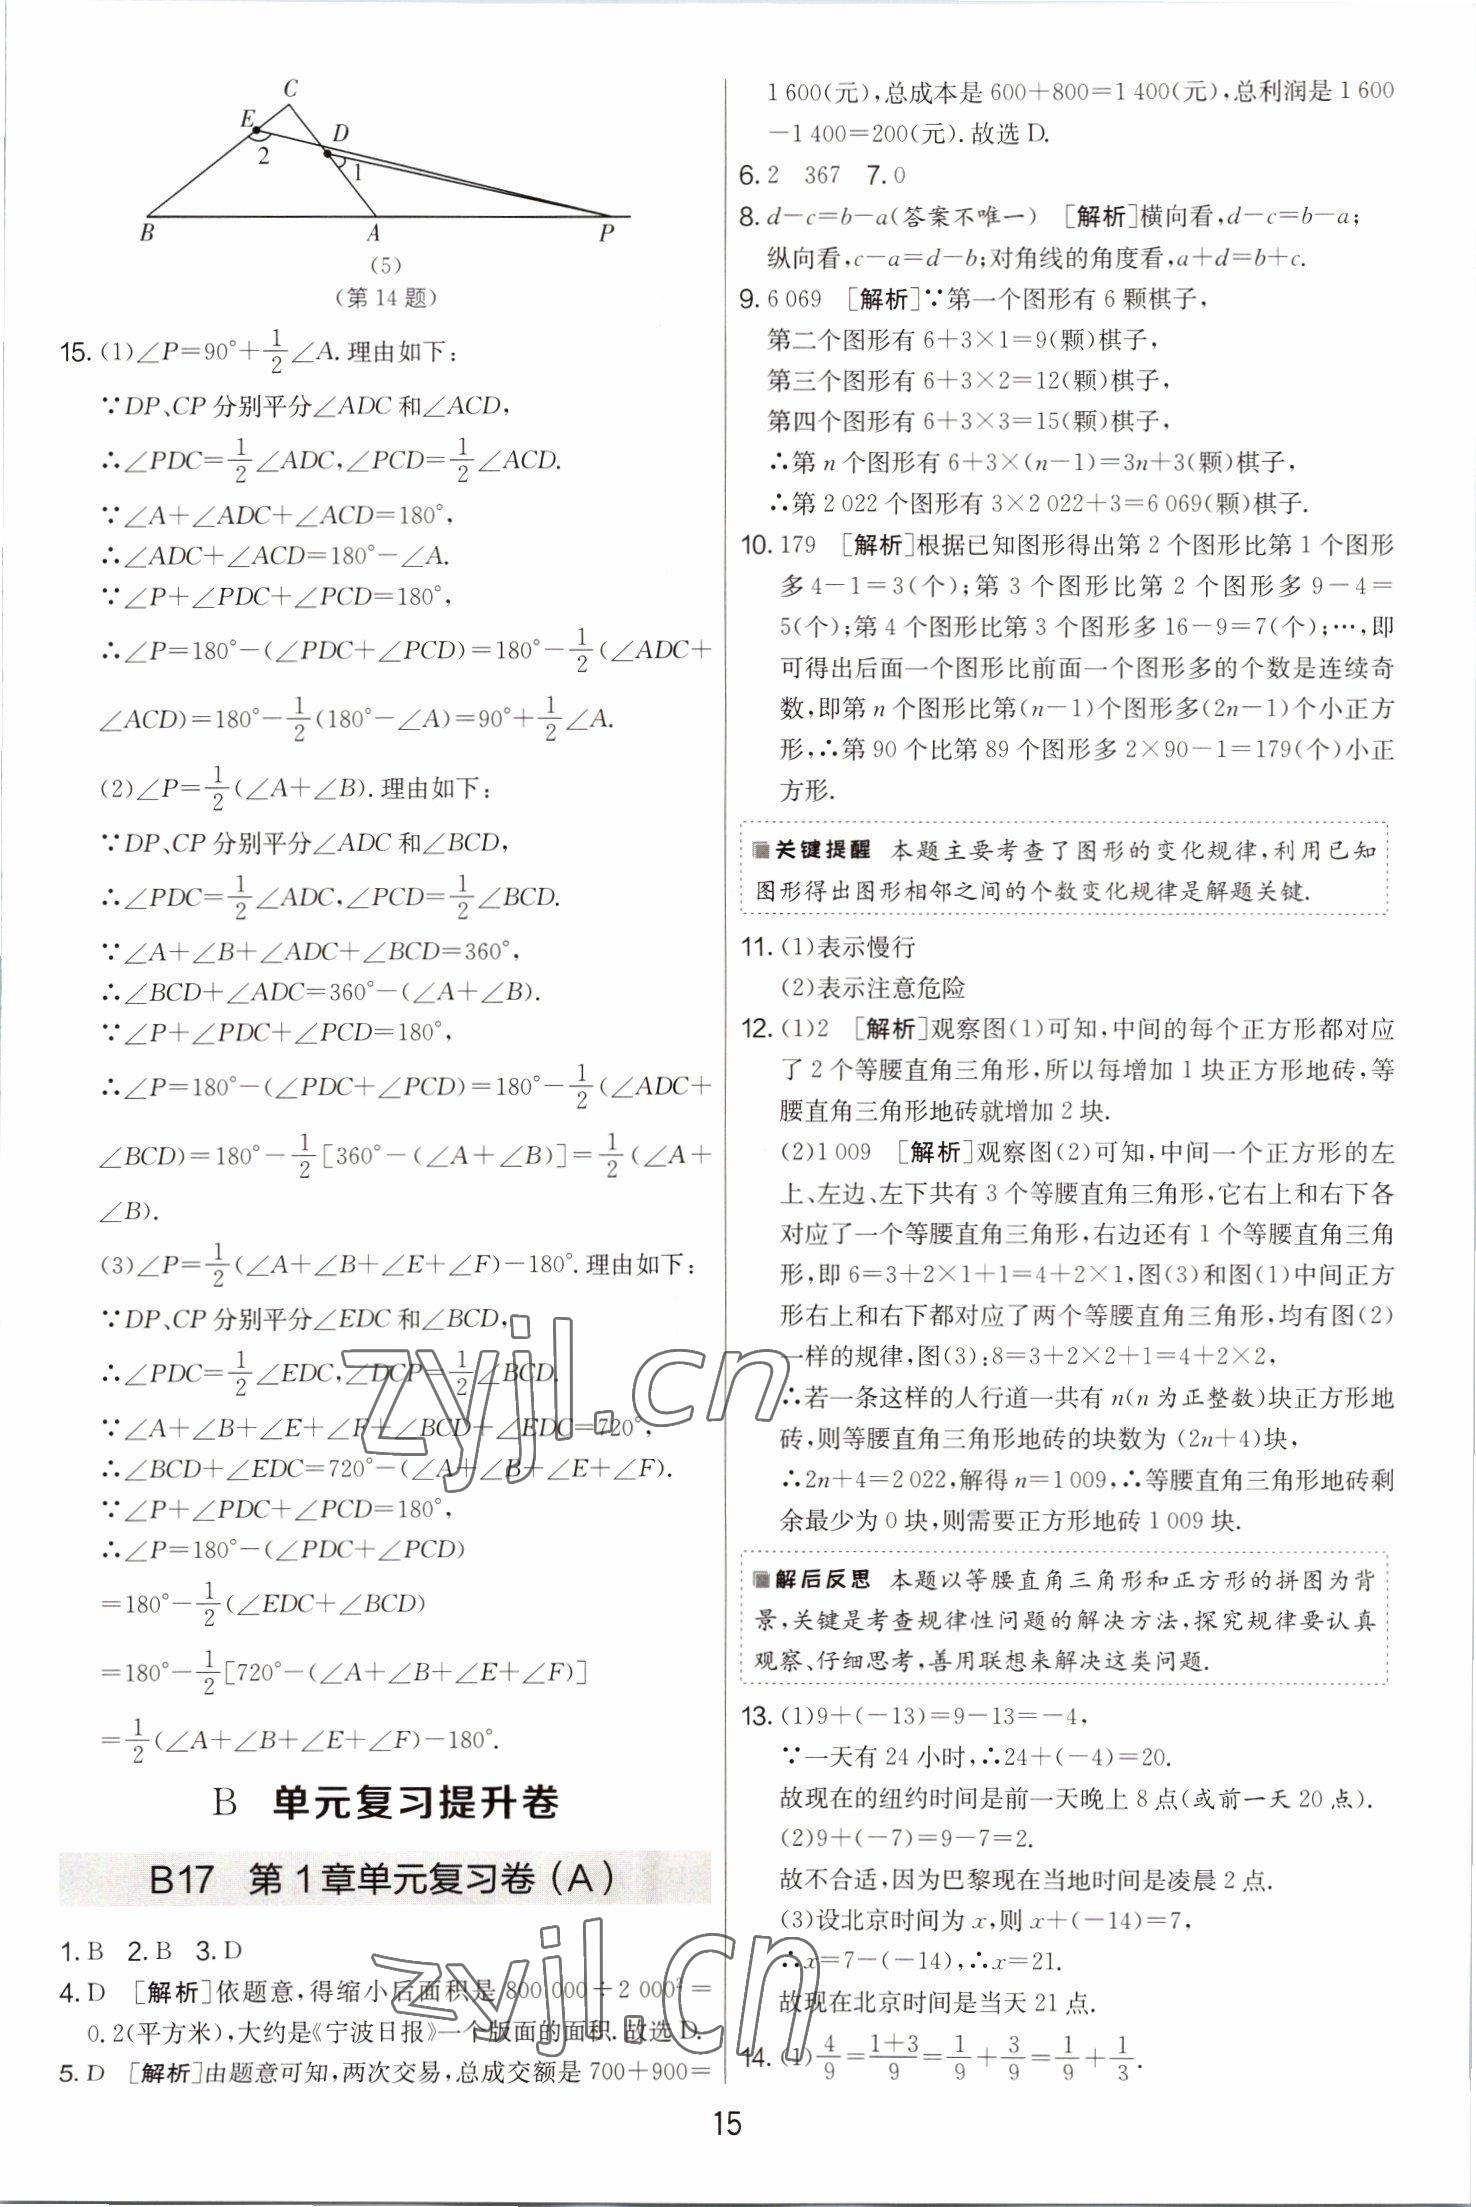 C
E
D
2
1
B
A
P
(5)
(第 14 题)
15. (1)∠P=90°+1/2∠A. 理由如下:
∵DP、CP 分别平分∠ADC 和∠ACD,
∴∠PDC=1/2∠ADC,∠PCD=1/2∠ACD.
∵∠A+∠ADC+∠ACD=180°,
∴∠ADC+∠ACD=180°-∠A.
∵∠P+∠PDC+∠PCD=180°,
∴∠P=180°-(∠PDC+∠PCD)=180°-1/2(∠ADC+
∠ACD)=180°-1/2(180°-∠A)=90°+1/2∠A.
(2)∠P=1/2(∠A+∠B). 理由如下:
∵DP、CP 分别平分∠ADC 和∠BCD,
∴∠PDC=1/2∠ADC,∠PCD=1/2∠BCD.
∵∠A+∠B+∠ADC+∠BCD=360°,
∴∠BCD+∠ADC=360°-(∠A+∠B).
∵∠P+∠PDC+∠PCD=180°,
∴∠P=180°-(∠PDC+∠PCD)=180°-1/2(∠ADC+
∠BCD)=180°-1/2[360°-(∠A+∠B)]=1/2(∠A+
∠B).
(3)∠P=1/2(∠A+∠B+∠E+∠F)-180°. 理由如下:
∵DP、CP 分别平分∠EDC 和∠BCD,
∴∠PDC=1/2∠EDC,∠DCP=1/2∠BCD.
∵∠A+∠B+∠E+∠F+∠BCD+∠EDC=720°,
∴∠BCD+∠EDC=720°-(∠A+∠B+∠E+∠F).
∵∠P+∠PDC+∠PCD=180°,
∴∠P=180°-(∠PDC+∠PCD)
=180°-1/2(∠EDC+∠BCD)
=180°-1/2[720°-(∠A+∠B+∠E+∠F)]
=1/2(∠A+∠B+∠E+∠F)-180°.
B 单元复习提升卷
B17 第 1 章单元复习卷(A)
1. B 2. B 3. D
4. D [解析]依题意,得缩小后面积是 800 000÷2 000²=
0.2(平方米),大约是《宁波日报》一个版面的面积. 故选 D.
5. D [解析]由题意可知,两次交易,总成交额是 700+900=
1 600(元),总成本是 600+800=1 400(元),总利润是 1 600
-1 400=200(元). 故选 D.
6. 2 367 7. 0
8. d-c=b-a(答案不唯一) [解析]横向看,d-c=b-a;
纵向看,c-a=d-b;对角线的角度看,a+d=b+c.
9. 6 069 [解析]∵第一个图形有 6 颗棋子,
第二个图形有 6+3×1=9(颗)棋子,
第三个图形有 6+3×2=12(颗)棋子,
第四个图形有 6+3×3=15(颗)棋子,
∴第 n 个图形有 6+3×(n-1)=3n+3(颗)棋子,
∴第 2 022 个图形有 3×2 022+3=6 069(颗)棋子.
10. 179 [解析]根据已知图形得出第 2 个图形比第 1 个图形
多 4-1=3(个);第 3 个图形比第 2 个图形多 9-4=
5(个);第 4 个图形比第 3 个图形多 16-9=7(个);…,即
可得出后面一个图形比前面一个图形多的个数是连续奇
数,即第 n 个图形比第(n-1)个图形多(2n-1)个小正方
形,∴第 90 个比第 89 个图形多 2×90-1=179(个)小正
方形.
关键提醒 本题主要考查了图形的变化规律,利用已知
图形得出图形相邻之间的个数变化规律是解题关键.
11. (1)表示慢行
(2)表示注意危险
12. (1)2 [解析]观察图(1)可知,中间的每个正方形都对应
了 2 个等腰直角三角形,所以每增加 1 块正方形地砖,等
腰直角三角形地砖就增加 2 块.
(2)1 009 [解析]观察图(2)可知,中间一个正方形的左
上、左边、左下共有 3 个等腰直角三角形,它右上和右下各
对应了一个等腰直角三角形,右边还有 1 个等腰直角三角
形,即 6=3+2×1+1=4+2×1,图(3)和图(1)中间正方
形右上和右下都对应了两个等腰直角三角形,均有图(2)
一样的规律,图(3):8=3+2×2+1=4+2×2,
∴若一条这样的人行道一共有 n(n 为正整数)块正方形地
砖,则等腰直角三角形地砖的块数为 (2n+4)块,
∴2n+4=2 022,解得 n=1 009,∴等腰直角三角形地砖剩
余最少为 0 块,则需要正方形地砖 1 009 块.
解后反思 本题以等腰直角三角形和正方形的拼图为背
景,关键是考查规律性问题的解决方法,探究规律要认真
观察、仔细思考,善用联想来解决这类问题.
13. (1)9+(-13)=9-13=-4,
∵一天有 24 小时,∴24+(-4)=20.
故现在的纽约时间是前一天晚上 8 点(或前一天 20 点).
(2)9+(-7)=9-7=2.
故不合适,因为巴黎现在当地时间是凌晨 2 点.
(3)设北京时间为 x,则 x+(-14)=7,
∴x=7-(-14),∴x=21.
故现在北京时间是当天 21 点.
14. (1)4/9=(1+3)/9=1/9+3/9=1/9+1/3.
15
zyjl.cn
zyjl.cn